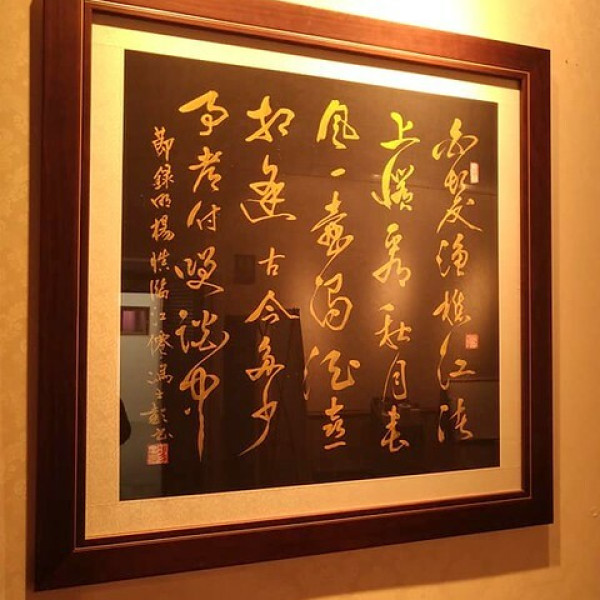 白髮漁樵江渚
上慣看秋月春
風一壺濁酒喜
相逢古今多少
事都付笑談中
節録明楊慎臨江僊馮書